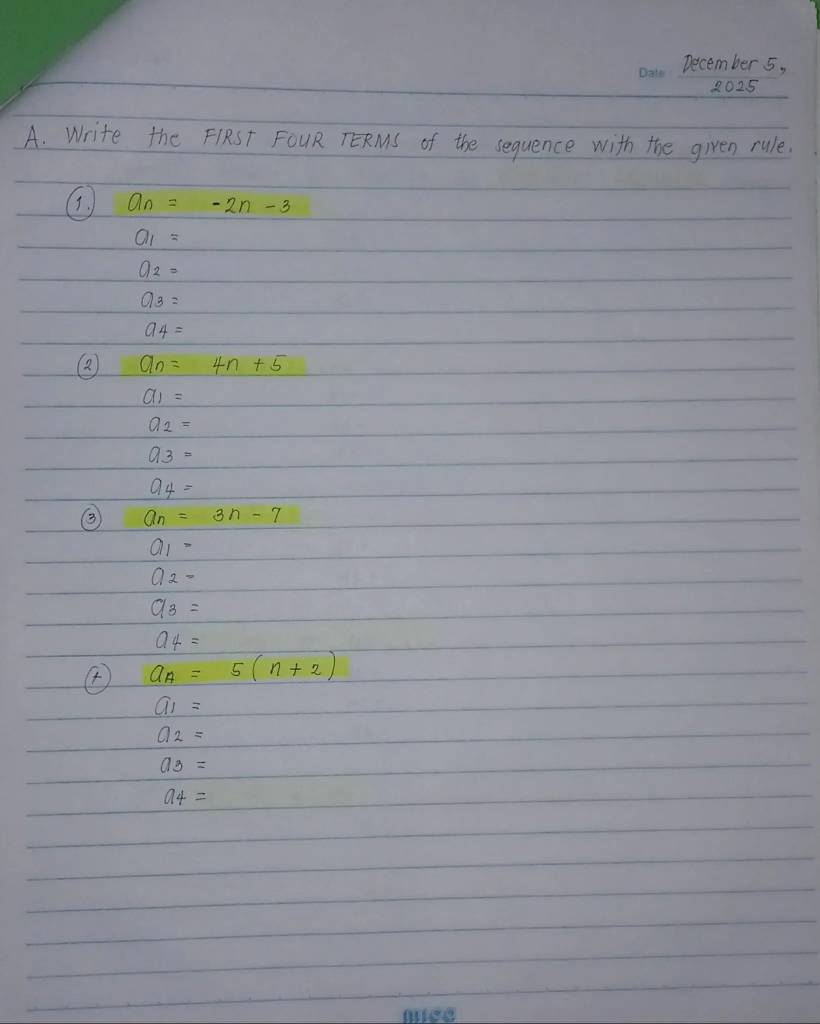 Date December 5,
2025
A. Write the FIRST FOUR TERMS of the sequence with the given rule.
1. an = -2n - 3
a1 =
a2 =
a3 =
a4 =
2 an = 4n + 5
a1 =
a2 =
a3 =
a4 =
3 an = 3n - 7
a1 =
a2 =
a3 =
a4 =
aA = 5(n + 2)
a1 =
a2 =
a3 =
a4 =